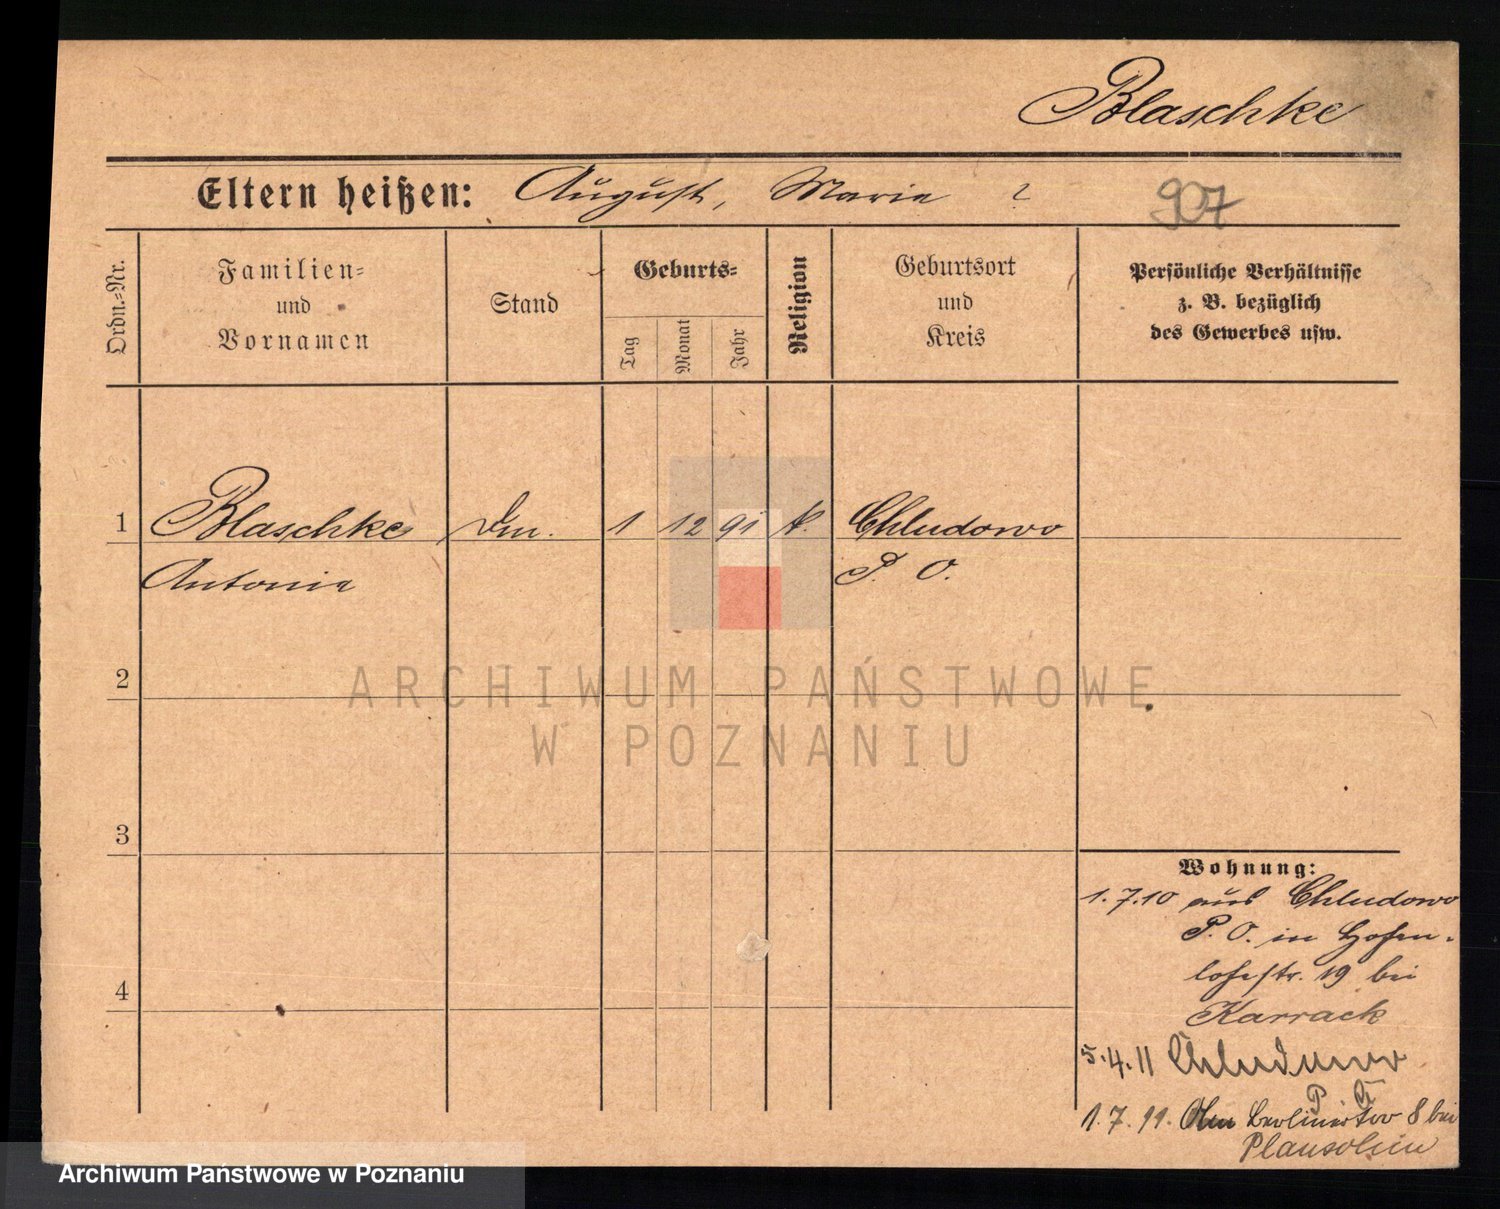 Blaschke
Eltern heißen: August, Marie ? 907
Ordn.-Nr.
Familien-
und
Vornamen
Stand
Geburts-
Tag
Monat
Jahr
Religion
Geburtsort
und
Kreis
Persönliche Verhältnisse
z. B. bezüglich
des Gewerbes usw.
1 Blaschke 1 12 91 k. Chludowo
Antonie P. O.
2
ARCHIWUM PAŃSTWOWE
W POZNANIU
3
Wohnung:
1.7.10 aus Chludowo
P. O. in Hohen-
lohestr. 19 bei
Karrack
4
5.4.11 Chludowo
P O
1.7.11. Berliner Tor 8 bei
Archiwum Państwowe w Poznaniu